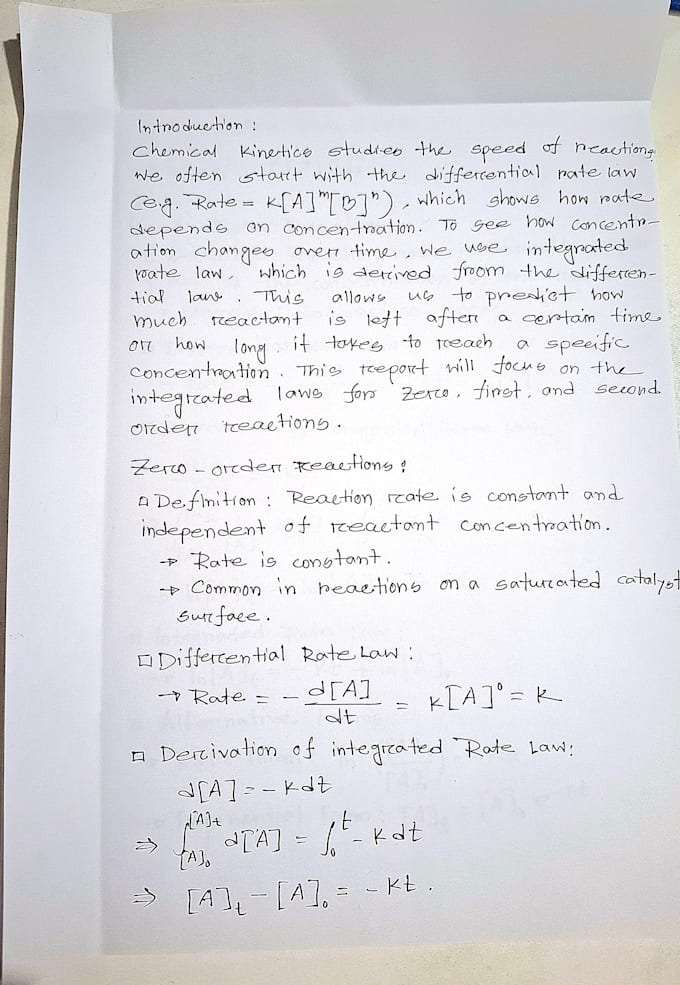 Introduction :
Chemical Kinetics studies the speed of reactions.
We often start with the differential rate law
(e.g. Rate = K[A]ᵐ[B]ⁿ), which shows how rate
depends on concentration. To see how concentr-
ation changes over time, we use integrated
rate law, which is derived from the differen-
tial law. This allows us to predict how
much reactant is left after a certain time
or how long it takes to reach a specific
concentration. This report will focus on the
integrated laws for Zero, first, and second
order reactions.
Zero-order Reactions :
□ Definition : Reaction rate is constant and
independent of reactant concentration.
→ Rate is constant.
→ Common in reactions on a saturated catalyst
surface.
□ Differential Rate Law :
→ Rate = - d[A]/dt = K[A]⁰ = K
□ Derivation of integrated Rate Law:
d[A] = - Kdt
⇒ ∫_{[A]₀}^{[A]t} d[A] = ∫₀ᵗ - K dt
⇒ [A]t - [A]₀ = - Kt.